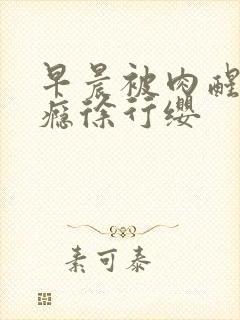 早晨被肉醒
瘾徐行缨
素可泰